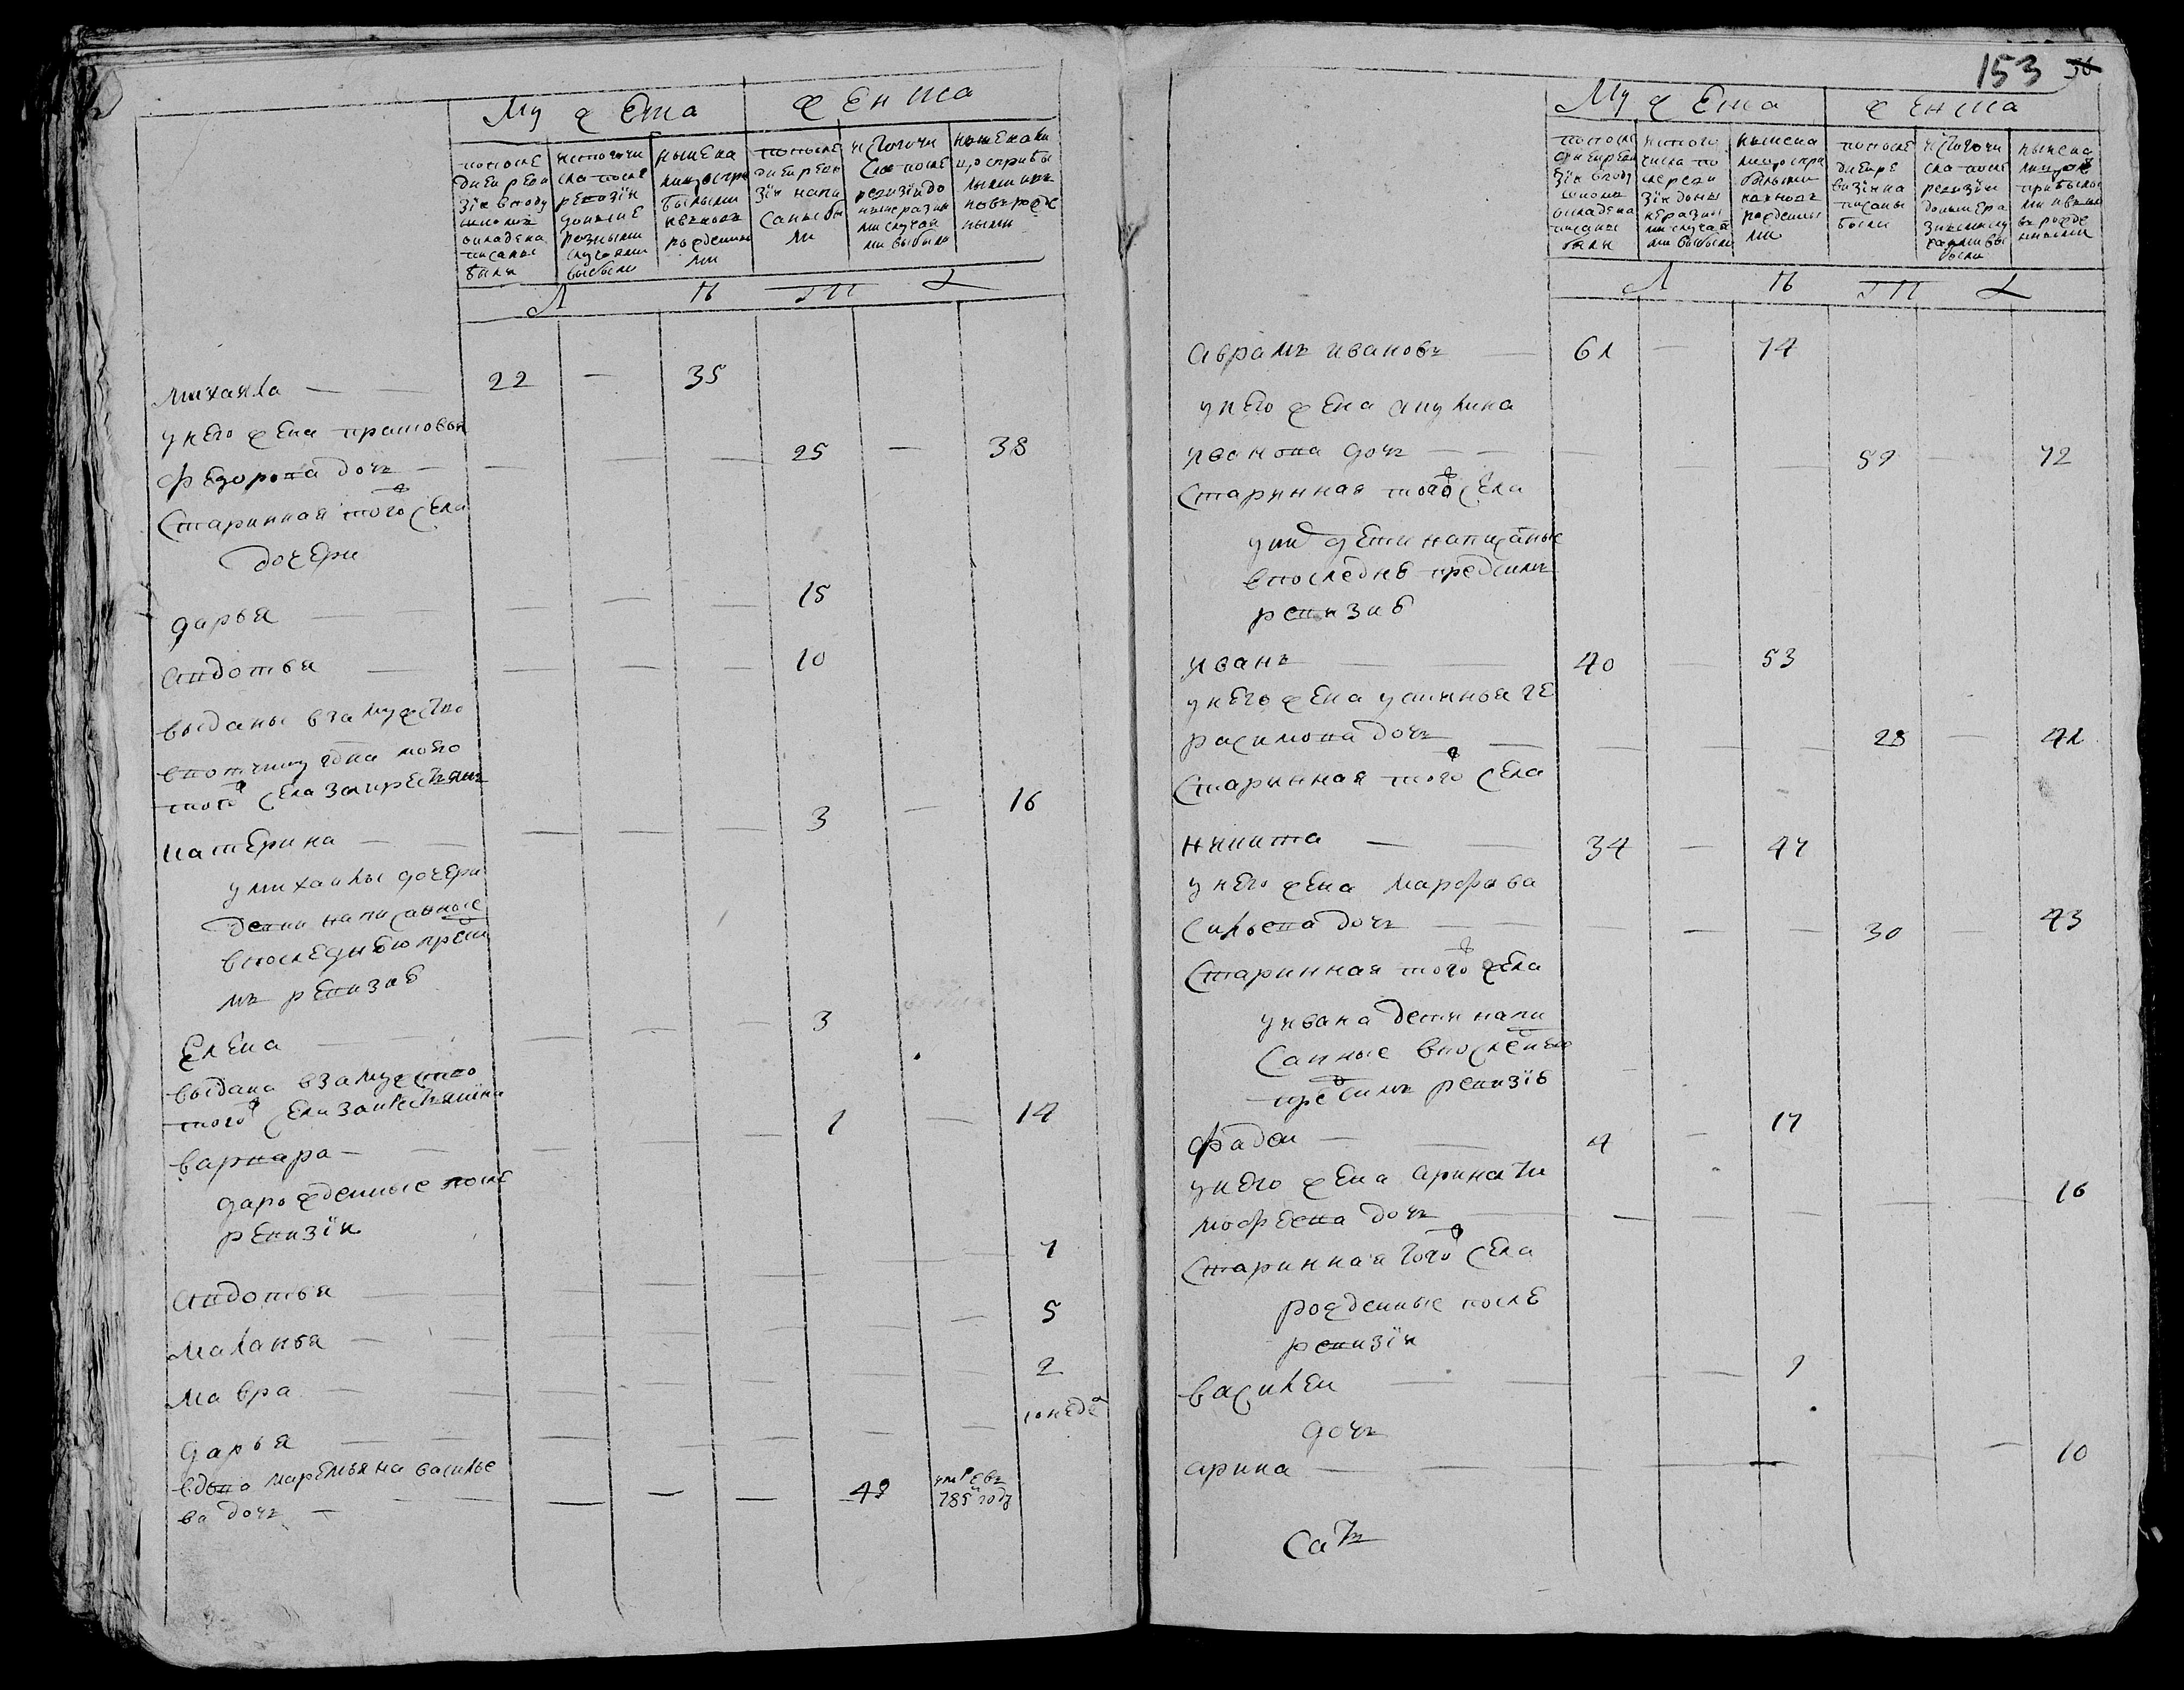 Мужеска
Женска
попосле
дней реви
зіи вподу
шномъ
окладе на
писаны
были
источи
сла после
ревизіи
доныне
разными
случаями
выбыли
ныне на
лицо спри
былыми
ивновь
рожденны
ми
попосле
дней реви
зіи напи
саны бы
ли
источи
сла после
ревизіи до
ныне разны
ми случаи
ми выбыли
ныне нали
цо сприбы
лыми ивъ
новь рожде
нными
Л Ѣ Т А
михаила — 22 — 35
унего жена прасковья
федорова дочь — 25 — 38
старинная тогожъ села
дочери
дарья — 15
авдотья — 10
выданы взамужство
тогожъ села закрестьянъ
катерина — 3 — 16
умихаилы дочери
дети написанные
впоследнею пред сим
мъ ревизиѣ
Елена — 3
выдана взамужство
тогожъ села закрестьянина
варвара — 1 — 14
дарожденные после
ревизіи
авдотья — 7
маланья — 5
мавра — 2
дарья — 10 неде
вдова маремьяна василье
ва дочь — 49 умре въ
785м году
153
Мужеска
Женска
попосле
дней реви
зіи вподу
шномъ
окладе на
писаны
были
истого
числа по
сле реви
зіи доны
не разны
ми случая
ми выбыли
ныне на
лицо спри
былыми
ивновь
рожденны
ми
попосле
дней ре
визіи на
писаны
были
источи
сла после
ревизіи
доныне ра
зными слу
чаями вы
были
ныне на
лицо с
прибылы
ми ивно
въ рожде
нными
Л Ѣ Т А
Аврамъ ивановъ — 61 — 74
унего жена акулина
иванова дочь — 59 — 72
старинная тогожъ села
уних дети написаные
впоследнѣ предсимъ
ревизиѣ
иванъ — 40 53
унего жена устинья ге
расимова дочь — 28 — 41
старинная тогожъ села
никита — 34 — 47
унего жена марфа ва
сильева дочь — 30 43
старинная тогожъ села
уивана дети напи
санные впоследнѣ
предсимъ ревизіѣ
фадеи — 4 — 17
унего жена арина ти
мофеева дочь — 16
старинная тогожъ села
рожденные после
ревизіи
василеи — 7
дочь
арина — 10